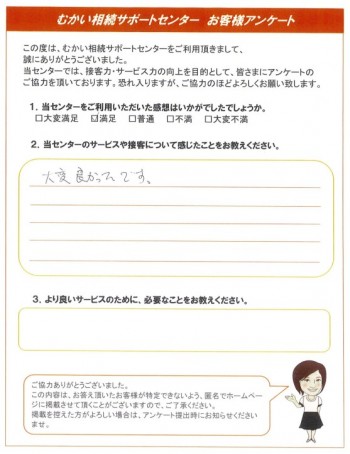 むかい相続サポートセンター　お客様アンケート
この度は、むかい相続サポートセンターをご利用頂きまして、
誠にありがとうございました。
当センターでは、接客力・サービス力の向上を目的として、皆さまにアンケートの
ご協力を頂いております。恐れ入りますが、ご協力のほどよろしくお願い致します。
１．当センターをご利用いただいた感想はいかがでしたでしょうか。
□大変満足　☑満足　□普通　□不満　□大変不満
２．当センターのサービスや接客について感じたことをお教えください。
大変良かったです。
３．より良いサービスのために、必要なことをお教えください。
ご協力ありがとうございました。
この内容は、お答え頂いたお客様が特定できないよう、匿名でホームペー
ジに掲載させて頂くことがございますので、ご了承ください。
掲載を控えた方がよろしい場合は、アンケート提出時にお知らせください
ませ。